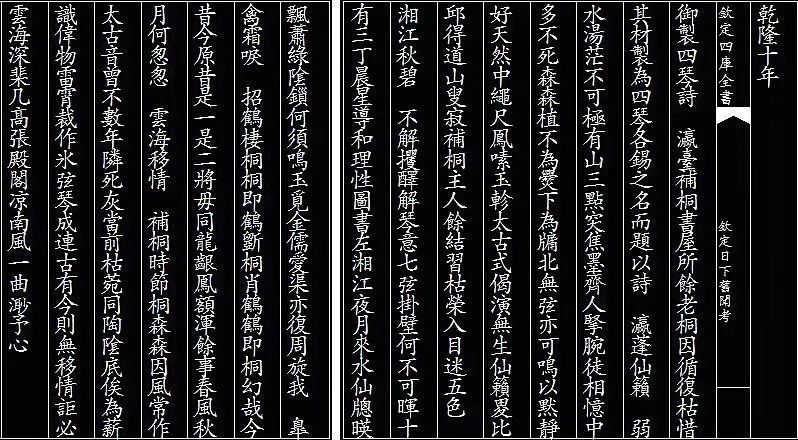 乾隆十年
欽定四庫全書 欽定日下舊聞考
御製四琴詩 瀛臺補桐書屋所餘老桐因循復枯惜
其材製為四琴各錫之名而題以詩 瀛蓬仙籟 弱
水湯茫不可極有山三點突焦墨齊人掔腕徒相憶中
多不死森森植不為爨下為牖北無弦亦可鳴以黙靜
好天然中繩尺鳳嗉玉軫太古式偈演無生仙籟畟比
邱得道山叟寂補桐主人餘結習枯榮入目迷五色
湘江秋碧 不解攫醳解琴意七弦掛壁何不可暉十
有三丁晨星導和理性圖書左湘江夜月來水仙牕暎
飄蕭綠陰鎖何須鳴玉覓金儒愛渠亦復周旋我 皋
禽霜唳 招鶴棲桐桐即鶴斵桐肖鶴鶴即桐幻哉今
昔今原昔是一是二將毋同龍齦鳳額渾餘事春風秋
月何怱怱 雲海移情 補桐時節桐森森因風常作
太古音曾不數年隣死灰當前枯菀同陶陰底俟為薪
識偉物雷霄裁作氷弦琴成連古有今則無移情詎必
雲海深棐几髙張殿閣凉南風一曲渺予心